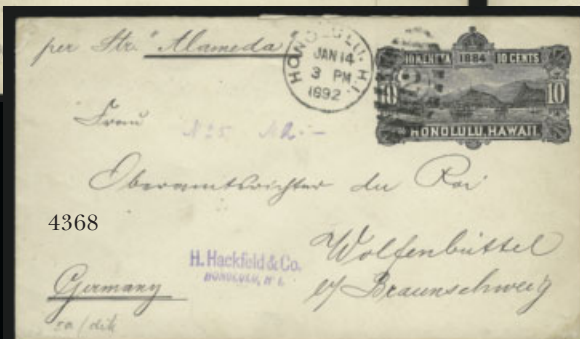 per Str. "Alameda"
HONOLULU. H.I.
JAN 14
3 PM
1892
10 KENETA 1884 10 CENTS
10 10
HONOLULU, HAWAII.
Frau
Oberamtsrichter du Roi
4368
Wolfenbüttel
H. Hackfeld & Co.
HONOLULU, H. I.
Germany
Braunschweig